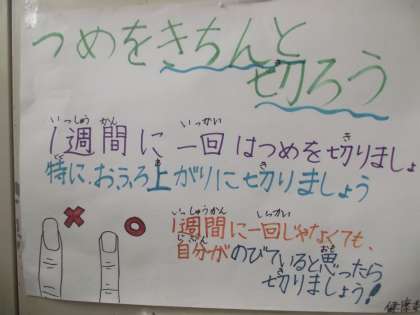 つめをきちんと
切ろう
1週間に一回はつめを切りましょ
特に、おふろ上がりに切りましょう
1週間に一回じゃなくても、
自分がのびていると思ったら
切りましょう!